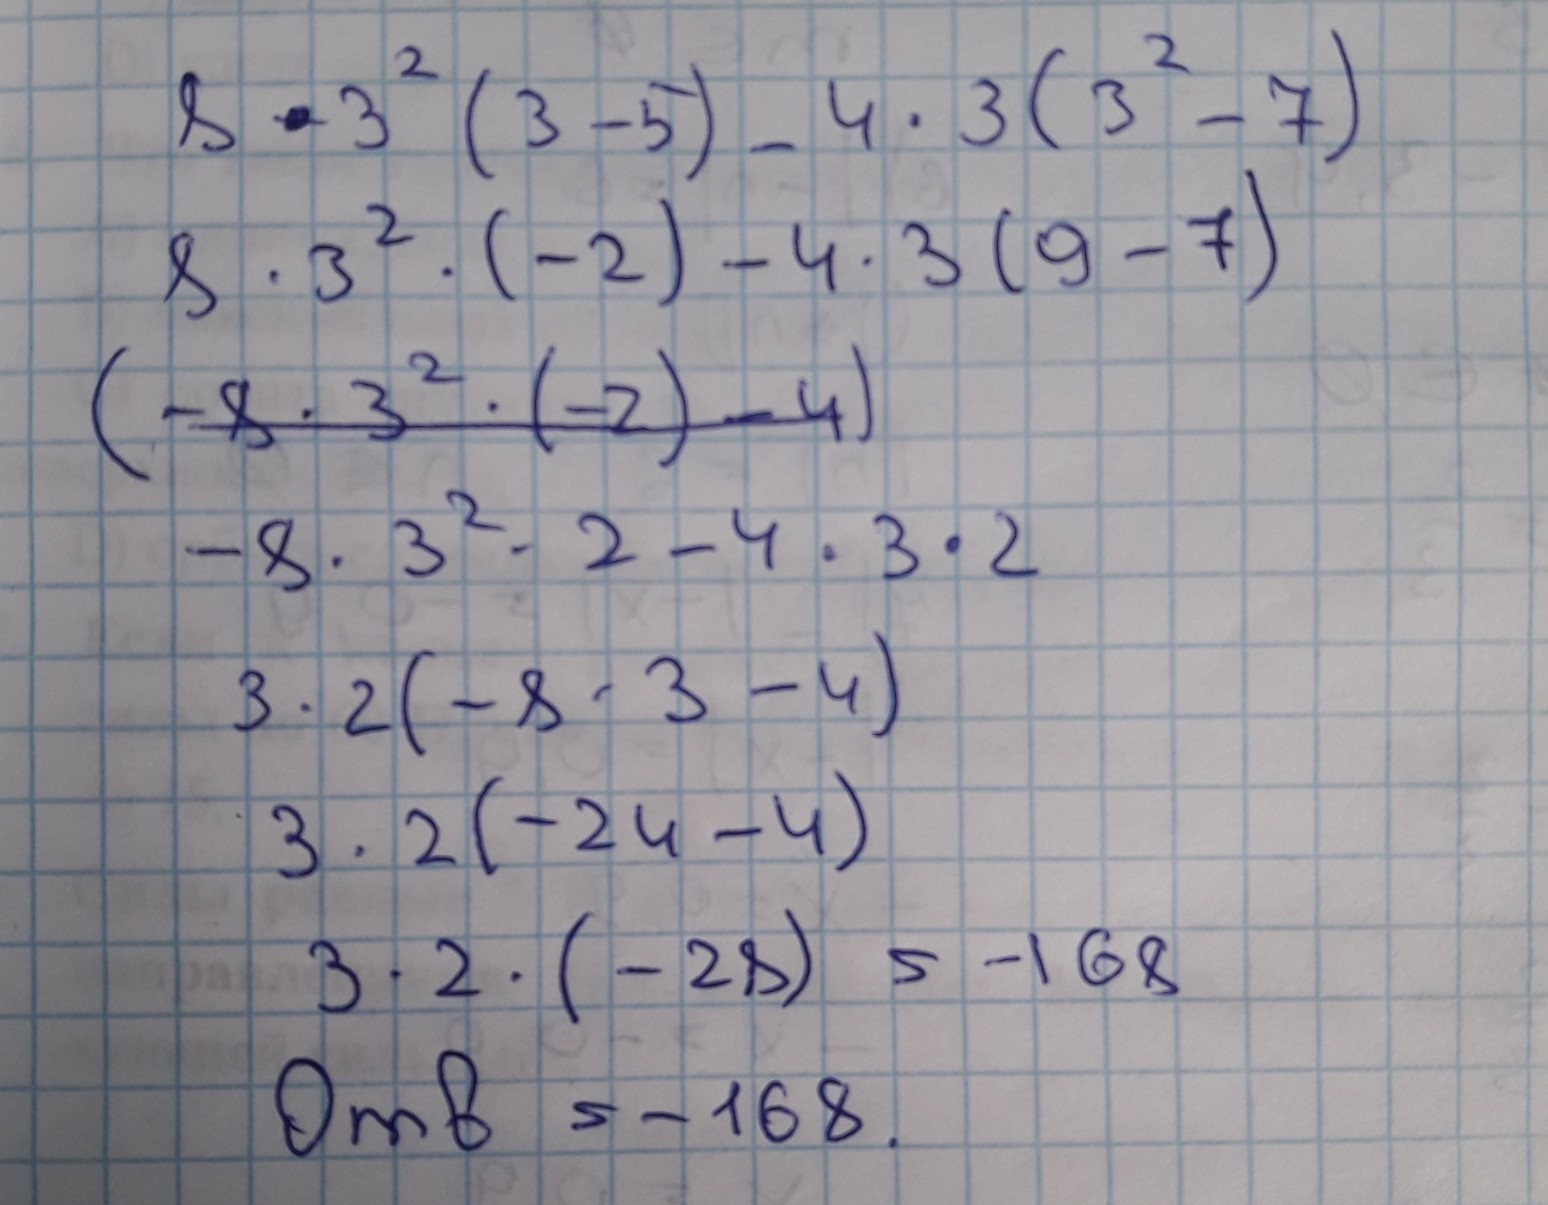 8 · 3² (3 - 5) - 4 · 3 (3² - 7)
8 · 3² · (-2) - 4 · 3 (9 - 7)
(-8 · 3² · (-2) - 4)
-8 · 3² · 2 - 4 · 3 · 2
3 · 2 (-8 · 3 - 4)
3 · 2 (-24 - 4)
3 · 2 · (-28) = -168
Отв = -168.